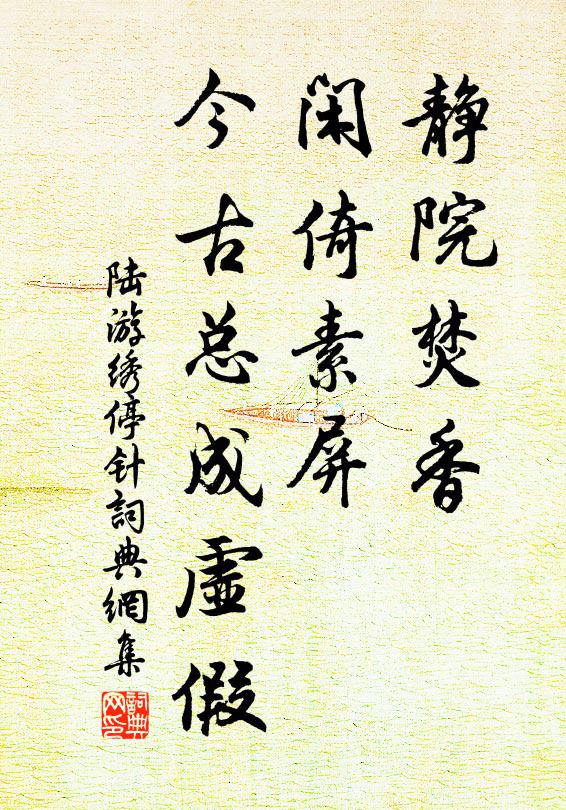 静院焚香
闲倚素屏
今古总成虚假
陆游绣停针詞典網集
詞典
网印